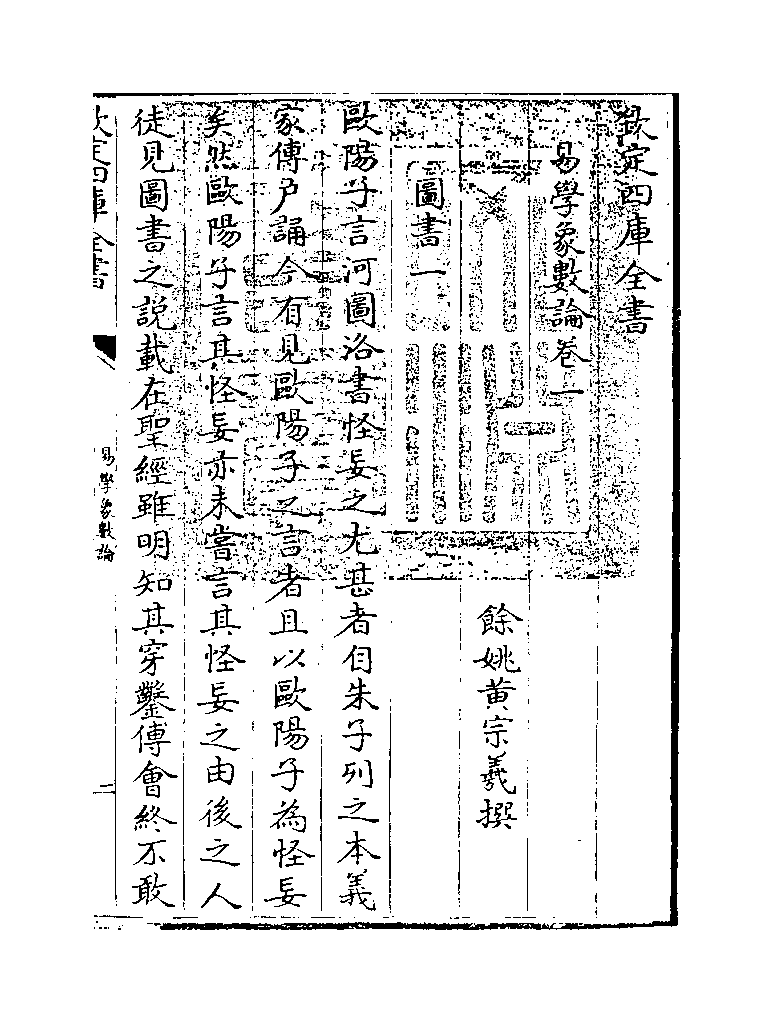 欽定四庫全書
易學象數論卷一
餘姚黄宗羲撰
圖書一
歐陽子言河圖洛書怪妄之尤甚者自朱子列之本義
家傳户誦今有見歐陽子之言者且以歐陽子為怪妄
矣然歐陽子言其怪妄亦未嘗言其怪妄之由後之人
徒見圖書之說載在聖經雖明知其穿鑿傅會終不敢
欽定四庫全書
易學象數論
二